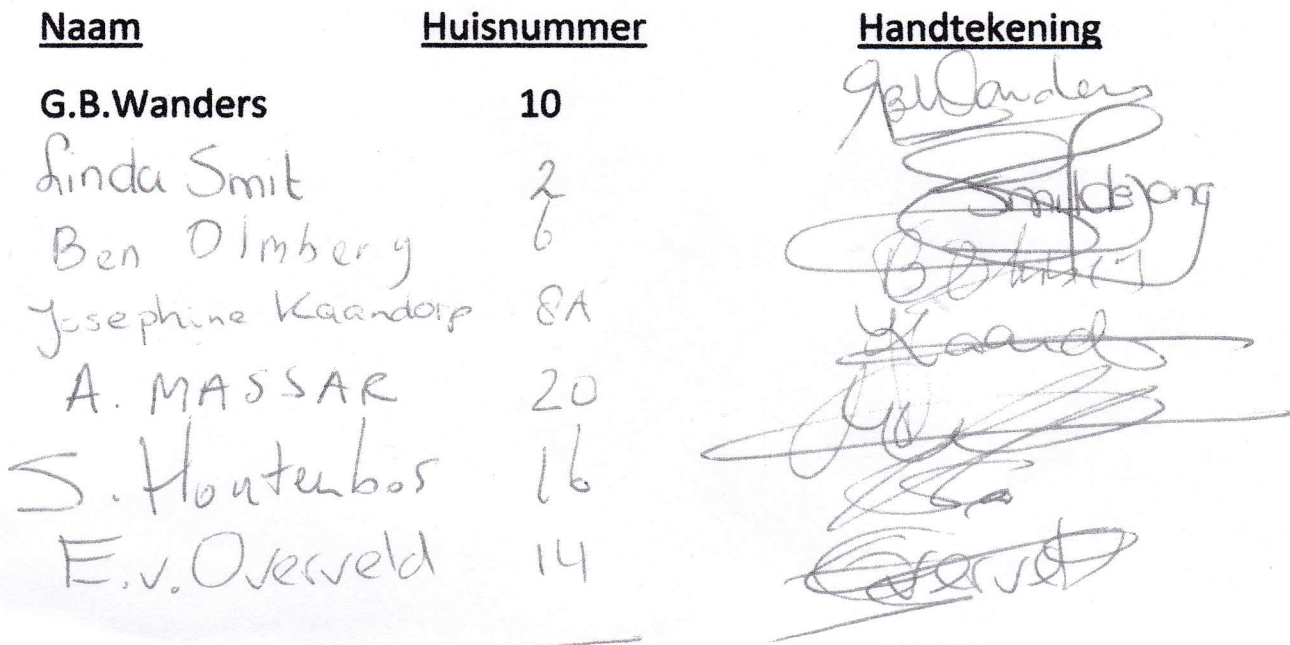 Naam Huisnummer Handtekening
G.B.Wanders 10 GBWanders
Linda Smit 2 Smit/de Jong
Ben Olmberg 6
Josephine Kaandorp 8A Kaand
A. MASSAR 20
S. Houtenbos 16
E.v. Overveld 14 Overveld